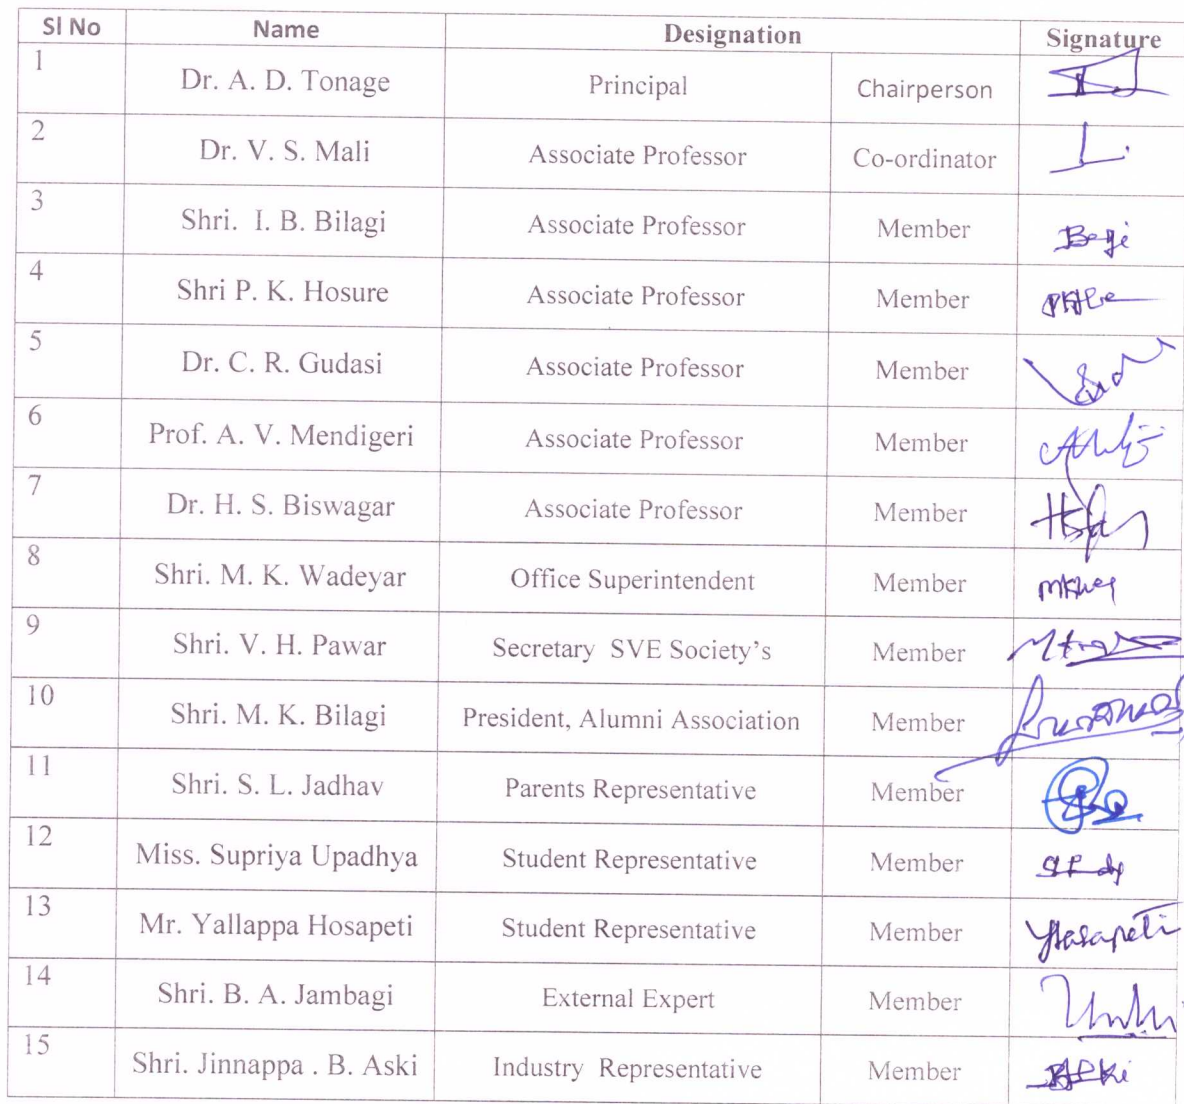 Sl No Name Designation Signature
1 Dr. A. D. Tonage Principal Chairperson
2 Dr. V. S. Mali Associate Professor Co-ordinator
3 Shri. I. B. Bilagi Associate Professor Member
4 Shri P. K. Hosure Associate Professor Member
5 Dr. C. R. Gudasi Associate Professor Member
6 Prof. A. V. Mendigeri Associate Professor Member
7 Dr. H. S. Biswagar Associate Professor Member
8 Shri. M. K. Wadeyar Office Superintendent Member
9 Shri. V. H. Pawar Secretary SVE Society's Member
10 Shri. M. K. Bilagi President, Alumni Association Member
11 Shri. S. L. Jadhav Parents Representative Member
12 Miss. Supriya Upadhya Student Representative Member
13 Mr. Yallappa Hosapeti Student Representative Member
14 Shri. B. A. Jambagi External Expert Member
15 Shri. Jinnappa . B. Aski Industry Representative Member